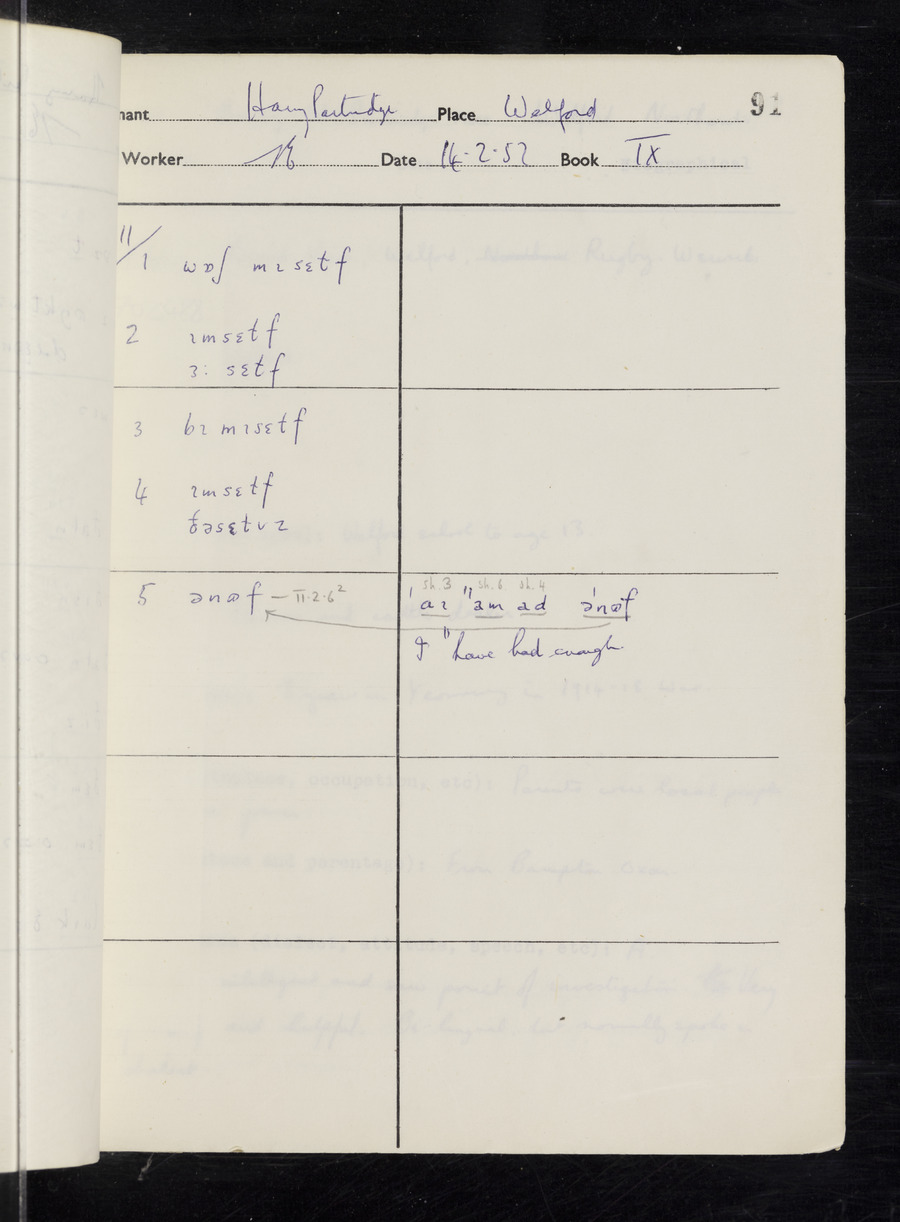 nant Harry Partridge Place Welford 91
Worker Date 14·2·52 Book IX
11/
1 wɒʃ mɪsɛtf
2 ɪmsɛtf
ɜ: sɛtf
3 bɪ mɪsɛtf
4 ɪmsɛtf
ðəsɛtvz
5 ənøf — II·2·6²
sh.3 sh.6 sh.4
ˈaɪ "am ad əˈnøf
I "have had enough.